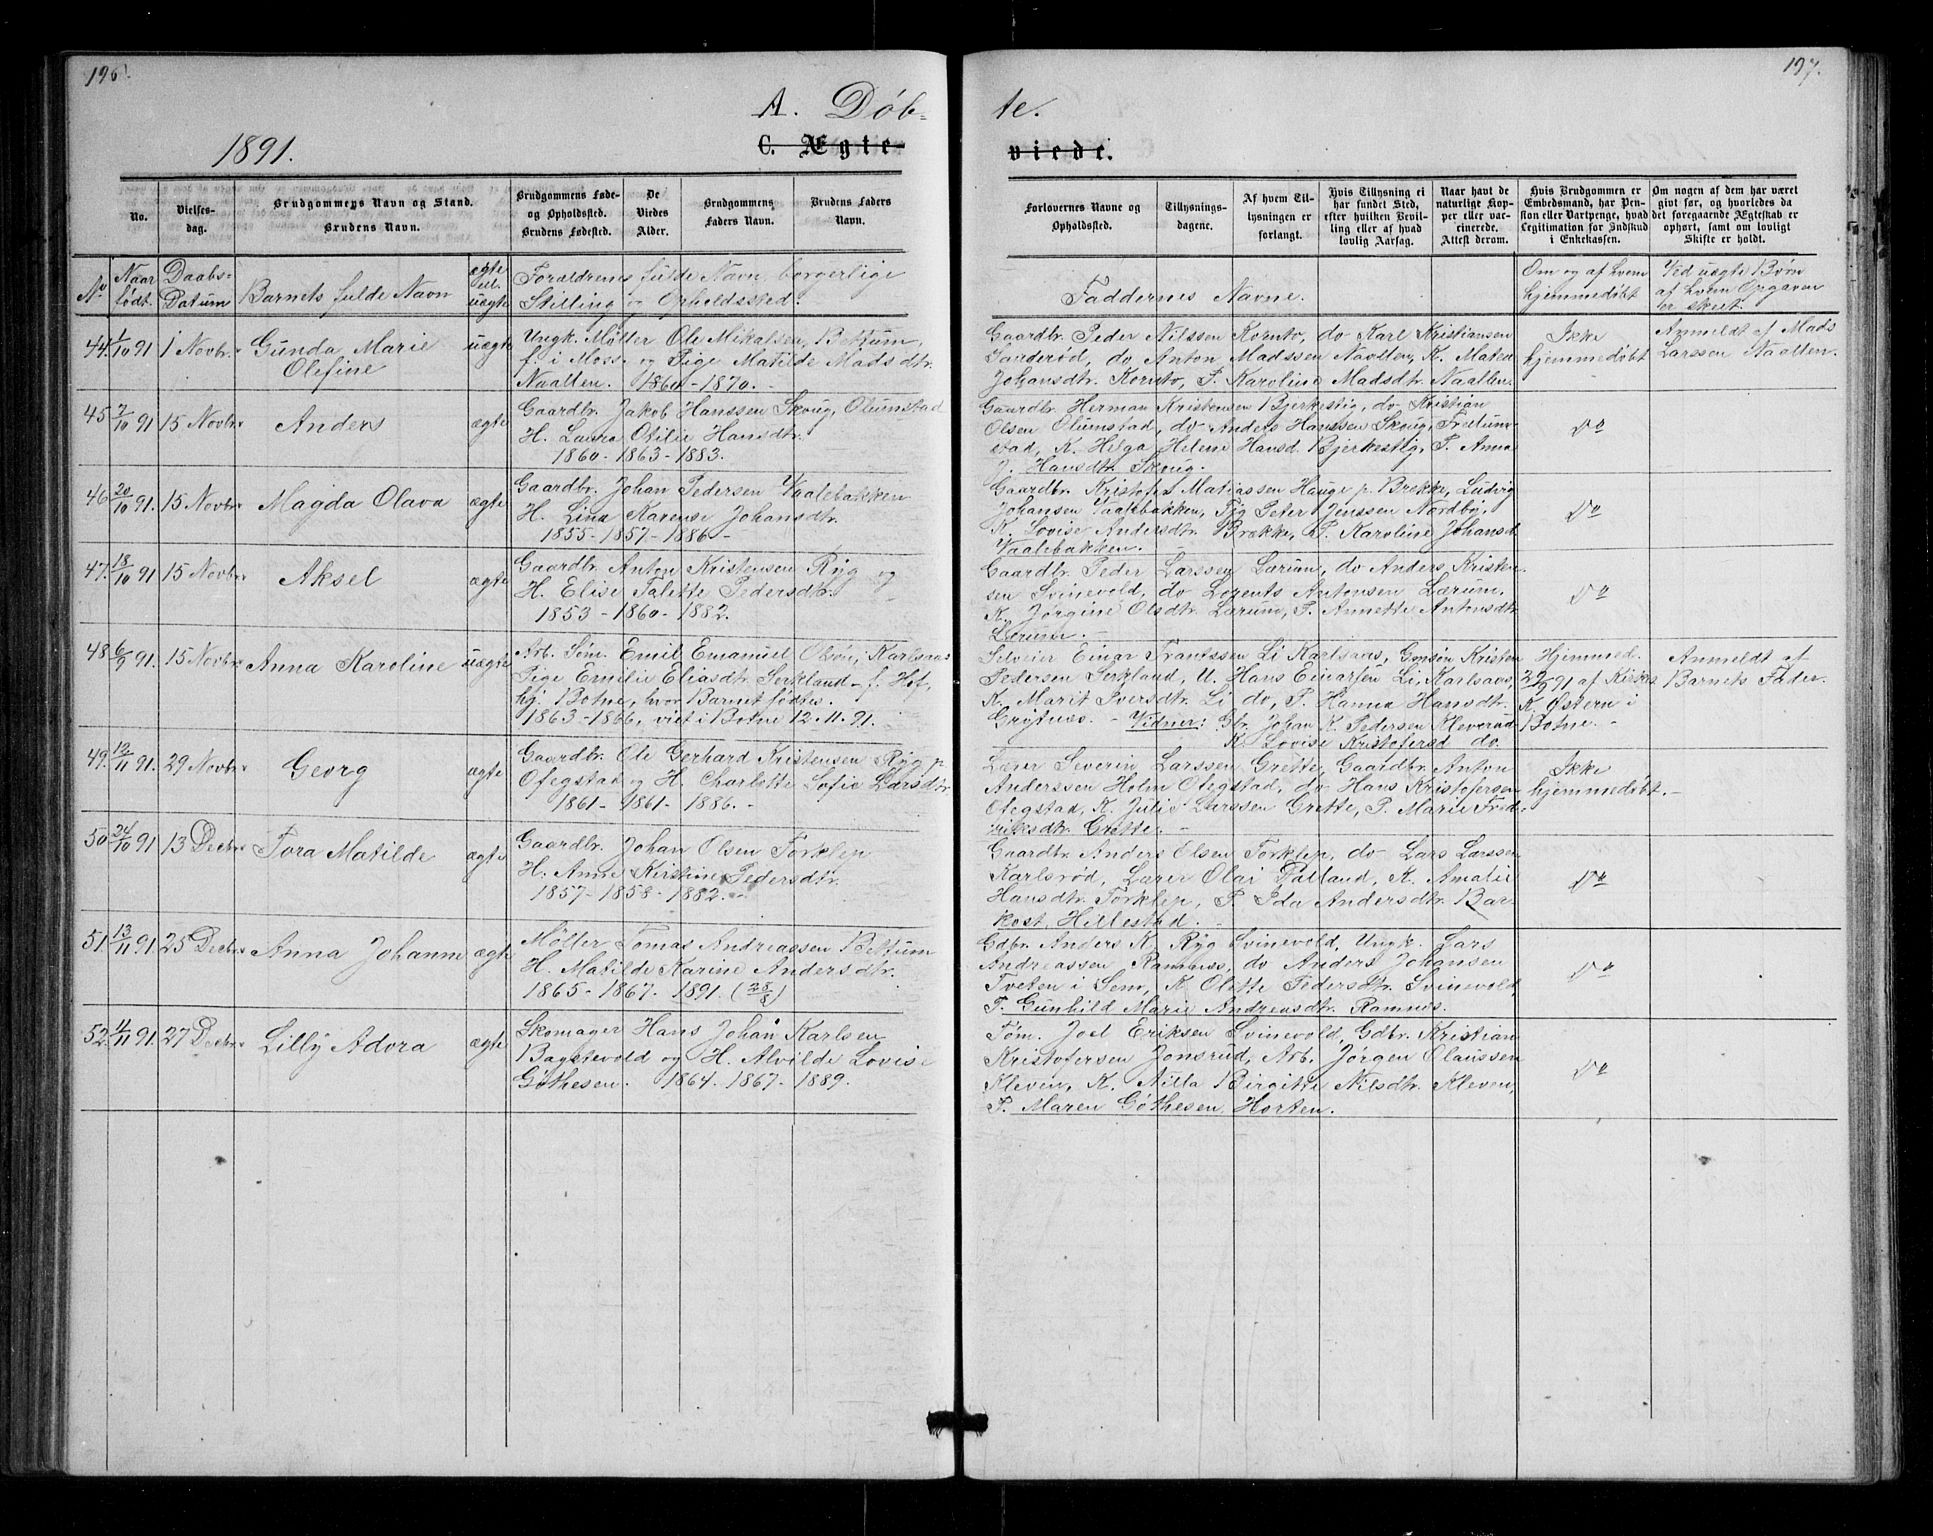 196.
197.
A. Døb-
te.
1891.
C. Ægte-
viede.
No.
Vielses-
dag.
Brudgommens Navn og Stand.
Brudens Navn.
Brudgommens Føde-
og Opholdssted.
Brudens Fødested.
De
Viedes
Alder.
Brudgommens
Faders Navn.
Brudens Faders
Navn.
Forlovernes Navne og
Opholdssted.
Tillysnings-
dagene.
Af hvem Til-
lysningen er
forlangt.
Hvis Tillysning ei
har fundet Sted,
efter hvilken Bevil-
ling eller af hvad
lovlig Aarsag.
Naar havt de
naturlige Kop-
per eller vac-
cinerede.
Attest derom.
Hvis Brudgommen er
Embedsmand, har Pen-
sion eller Vartpenge, hvad
Legitimation for Indskud
i Enkekassen.
Om nogen af dem har været
givt før, og hvorledes da
det foregaaende Ægteskab er
ophørt, samt om lovligt
Skifte er holdt.
No
Naar
født.
Daabs-
Datum
Barnets fulde Navn
ægte
ell.
uægte
Forældrenes fulde Navn, borgerlige
Stilling og Opholdssted.
Faddernes Navne.
Om og af hvem
hjemmedøbt
Ved uægte Børn
af hvem Opgaven
er skeet.
44. 1/10 91 1 Novbr. Gunda Marie
Olefine
uægte
Ungk. Møller Ole Mikalsen, Bettum,
f. i Moss og Pige Matilde Madsdtr.
Naalten. 1860 - 1870. -
Gaardbr. Peder Nilssen Kornto, do Karl Kristiansen
Sanderød, do Anton Madssen Navlten, K. Maten
Johansdtr. Kornto, P. Karoline Madsdtr. Naalten.
Ikke
hjemmedøbt
Anmeldt af Mads
Larssen Naalten.
45 7/10 91 15 Novbr. Anders ægte
Gaardbr. Jakob Hanssen Skoug, Olumstad
H. Laura Otilie Hansdtr.
1860 - 1863 - 1883.
Gaardbr. Herman Kristensen Bjerkestig, do Kristian
Olsen Olumstad, do Anders Hanssen Skoug, Frettum-
stad, K. Helga Helene Hansd. Bjerkestig, P. Anna
J. Hansdtr. Skoug.
Do
46 20/10 91. 15 Novbr. Magda Olava ægte
Gaardbr. Johan Pedersen Vaalebakken
H. Lina Karense Johansdtr.
1855 - 1857 - 1886 -
Gaardbr. Kristofer Matiassen Hauge p. Brekke, Ludvig
Johansen Vaalebakken, Pig Peter Jenssen Nordby,
K. Lovise Andersdtr. Brekke, P. Karoline Johansd.
Vaalebakken.
Do
47. 18/10 91 15 Novbr. Aksel ægte
Gaardbr. Anton Kristensen Ryg og
H. Elise Talette Pedersdtr.
1853 - 1860 - 1882.
Gaardbr. Peder Larssen Lærum, do Anders Kristen-
sen Svinevold, do Lorents Antonsen Lærum,
K. Jørgine Olsdtr. Lærum, P. Annette Antonsdtr.
Lærum. -
Do
48 6/9 91. 15 Novbr. Anna Karoline uægte
Arb. Søm. Emil Emanuel Olsen, Karlsaas
Pige Emilie Eliasdtr. Serkland - f. Hof,
hj. Botne, hvor Barnet fødtes.
1863 - 1866, viet i Botne 12. 11. 91.
Selveier Einar Frantssen Li Karlsaas, Gmsøn Kristen
Pedersen Serkland, U. Hans Einarsen Li, Karlsaas,
K. Marit Iversdtr. Li do, P. Hanna Hansdtr.
Grytnæs. - Vidner: Gbr. Johan K. Pedersen Kleverud
K. Lovise Kristofersd do.
Hjemmed.
af Kirks.
K. Østern i
Botne. -
Anmeldt af
Barnets Fader.
49. 12/11 91. 29 Novbr. Georg ægte
Gaardbr. Ole Gerhard Kristensen Ryg p.
Ofegstad og H. Charlotte Sofie Larsdtr.
1861 - 1861 - 1886. -
Lærer Severin Larssen Grette, Gaardbr. Anton
Anderssen Holm Ofegstad, do Hans Kristofersen
Ofegstad, K. Julie Larssen Grette, P. Marie Fred-
riksdtr. Grette. -
Ikke
hjemmedøbt. -
50 24/10 91 13 Decbr. Tora Matilde ægte
Gaardbr. Johan Olsen Torklep
H. Anne Kirstine Pedersdtr.
1857 - 1858 - 1882. -
Gaardbr. Anders Olsen Torklep, do Lars Larssen
Karlsrød, Lærer Olai Dalland, K. Amalie
Hansdtr. Torklep, P. Ida Andersdtr. Bar-
kost, Hillestad. -
Do
51. 13/11 91. 25 Decbr. Anna Johanne ægte
Møller Tomas Andreassen Bettum
H. Matilde Karine Andersdtr.
1865 - 1867. 1891. (28/8)
Gdbr. Anders K. Ryg Svinevold, Ungk. Lars
Andreassen Ramnæs, do Anders Johansen
Tveten i Sem, K. Olette Pedersdtr. Svinevold,
P. Gunhild Marie Andreasdtr. Ramnæs.
Do
52. 4/11 91. 27 Decbr. Lilly Adora ægte
Skomager Hans Johan Karlsen
Bagstevold og H. Alvilde Lovise
Gøthesen. 1864. 1867 - 1889.
Tøm. Joel Eriksen Svinevold, Gdbr. Kristian
Kristofersen Jonsrud, Arb. Jørgen Olaussen
Kleven, K. Nilla Birgitte Nilsdtr. Kleven,
P. Maren Gøthesen, Horten.
Do